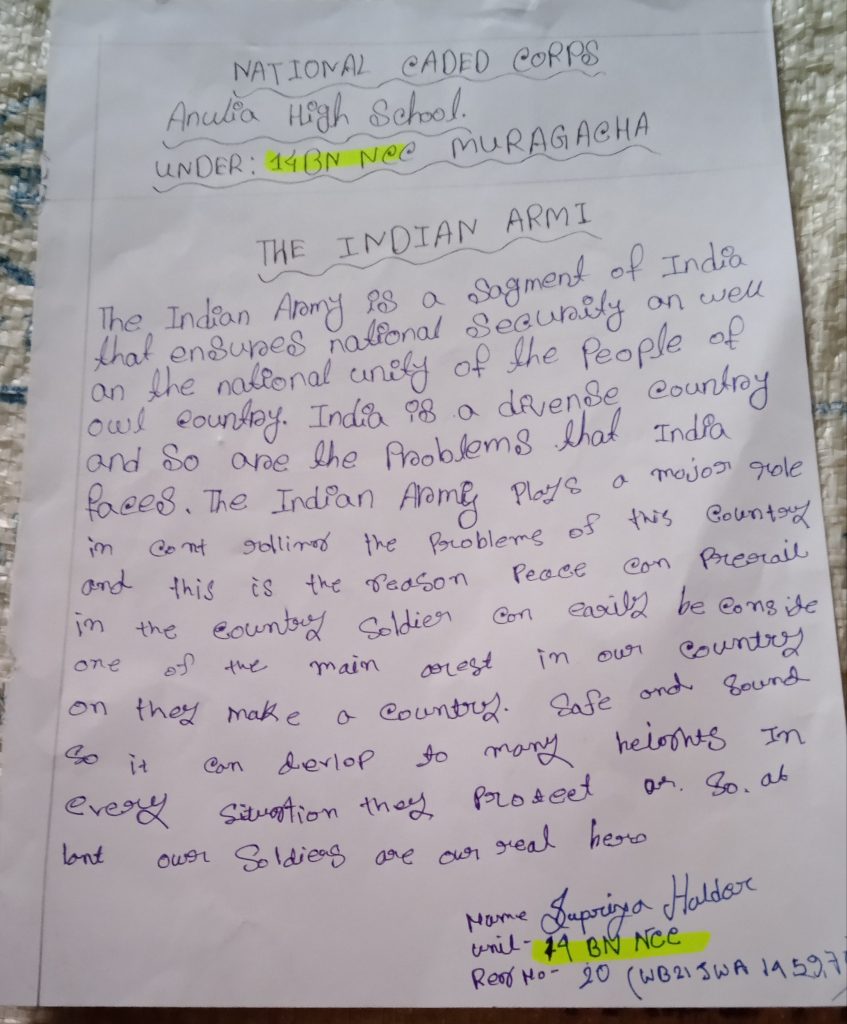 NATIONAL CADED CORPS
Anulia High School.
UNDER: 14 BN NCC MURAGACHA
THE INDIAN ARMI
The Indian Army is a sagment of India
that ensures national security an well
an the national unity of the People of
owl country. India is a divense country
and so are the Problems that India
faces. The Indian Army Plays a major role
in cont rolling the Problems of this Country
and this is the reason Peace can Prevail
in the country Soldier can easily be conside
one of the main arest in our country
on they make a country. Safe and Sound
So it can devlop to many heights In
every situation they Protect as. So. at
lant ower Soldiers are our real hero
Name Supriya Haldar
unit- 14 BN NCC
Reg No- 20 (WB21SWA 14597